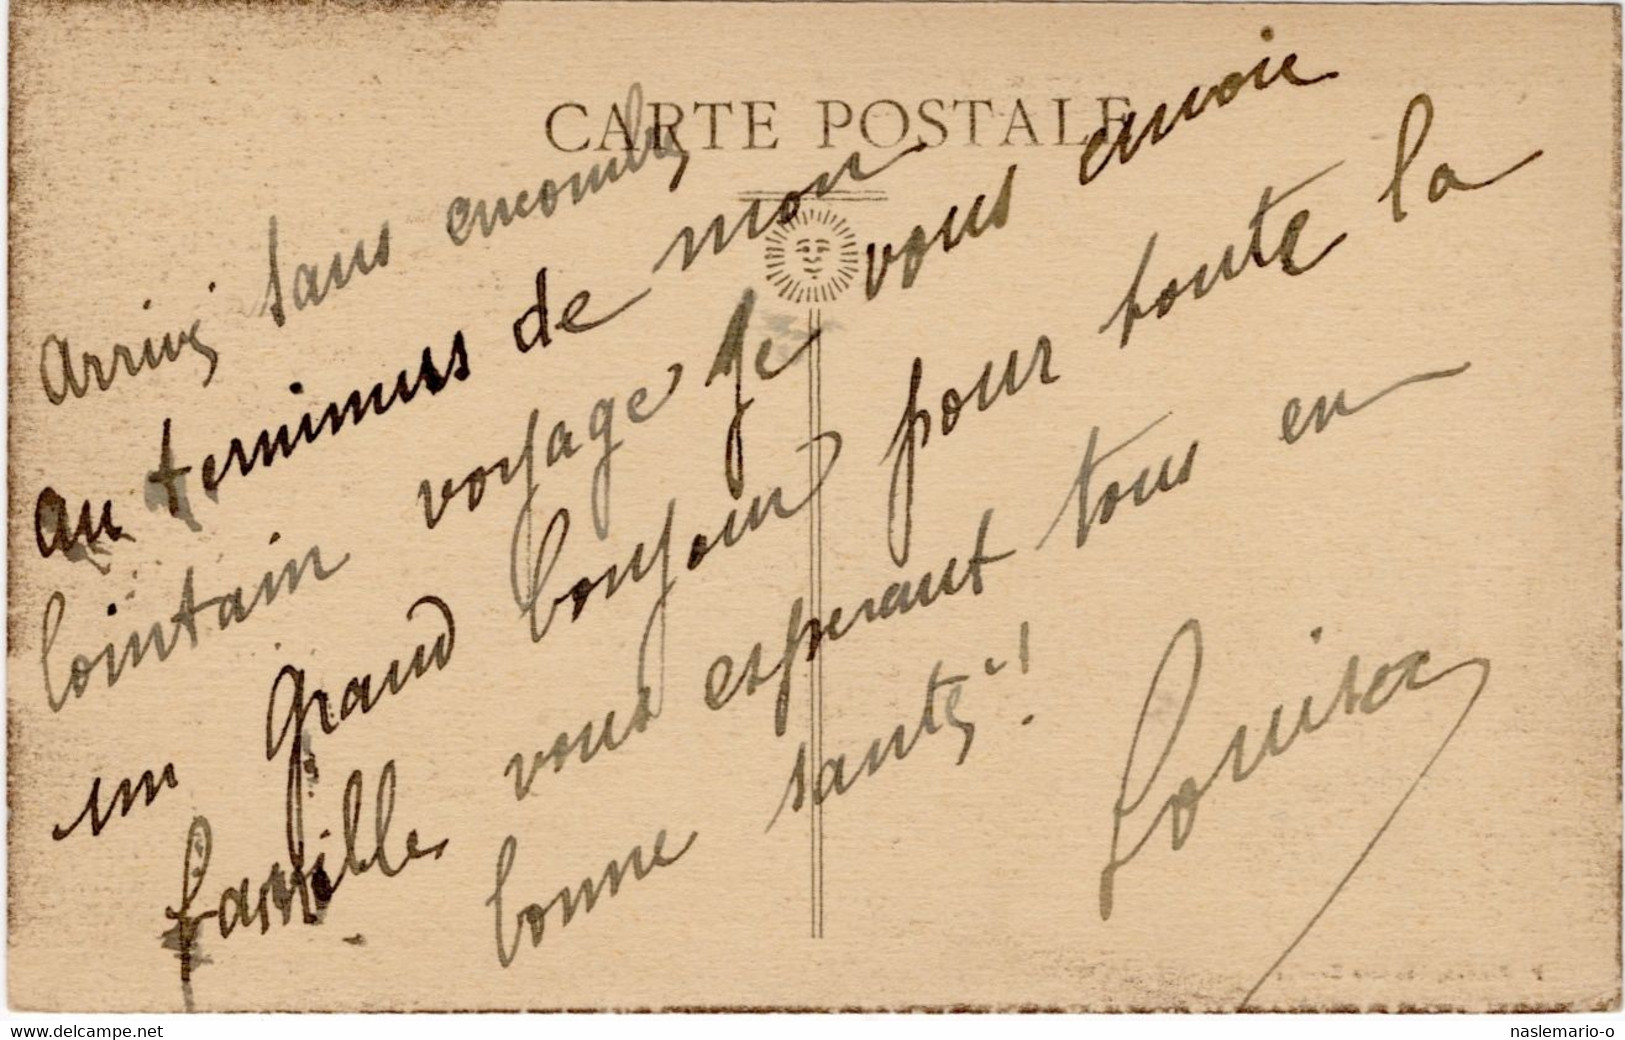 CARTE POSTALE
Arrivé sans encombre
au terminus de mon
lointain voyage je vous envoie
un grand bonjour pour toute la
famille vous esperant tous en
bonne santé !
www.delcampe.net
naslemario-o